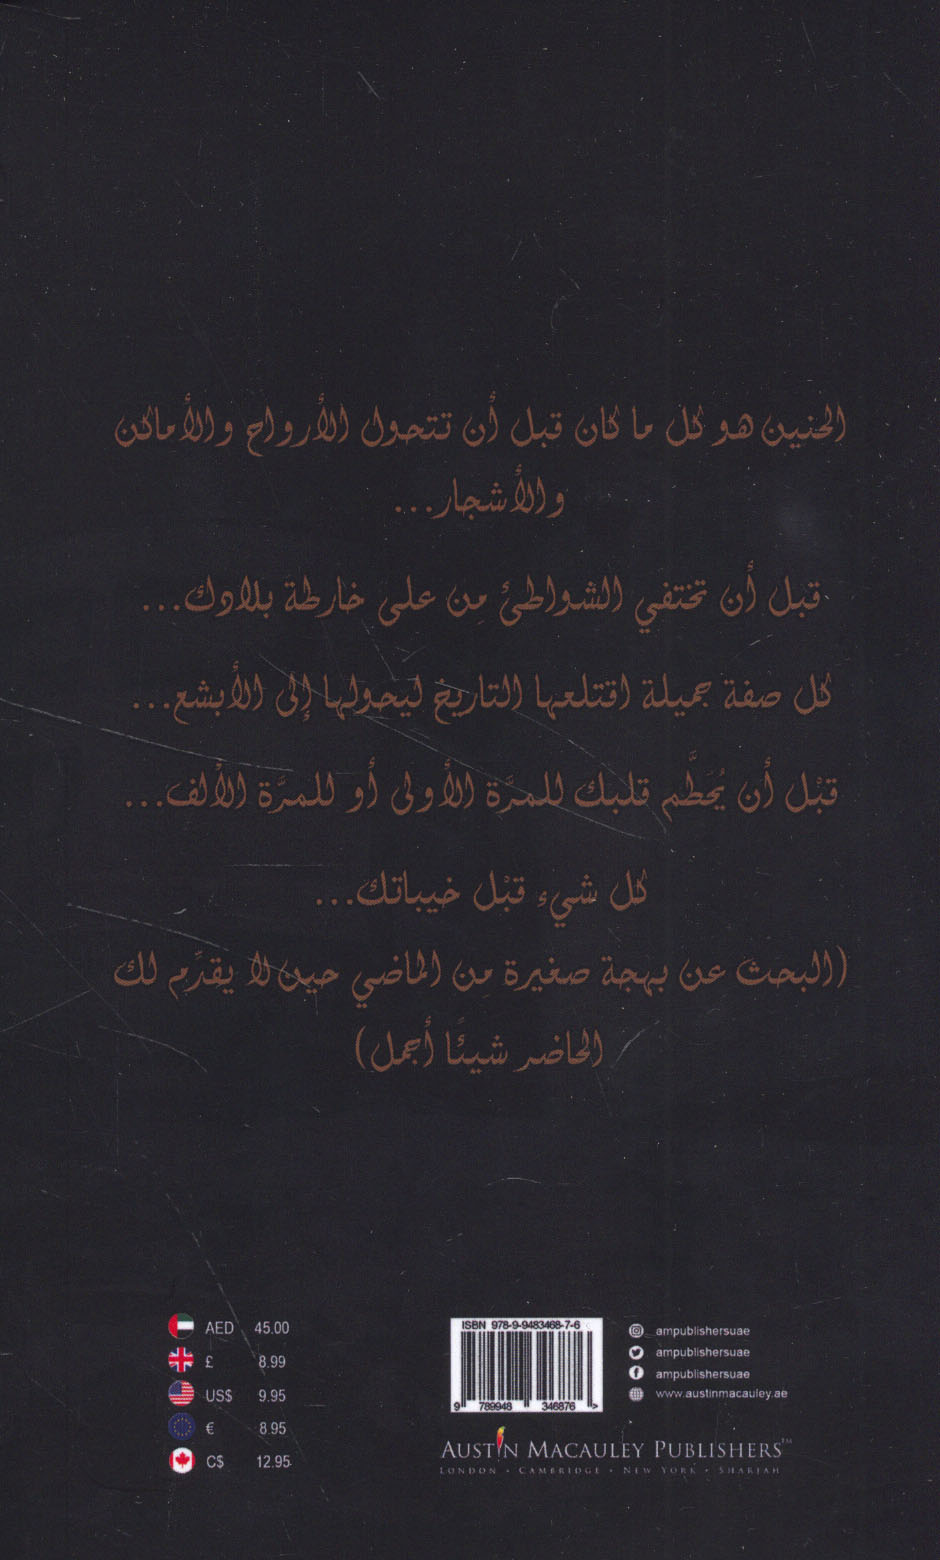 الحنين هو كل ما كان قبل أن تتحول الأرواح والأماكن
والأشجار...
قبل أن تختفي الشواطئ مِن على خارطة بلادك...
كل صفة جميلة اقتلعها التاريخ ليحولها إلى الأبشع...
قبْل أن يُحَطَّم قلبك للمرَّة الأولى أو للمرَّة الألف...
كل شيء قبْل خيباتك...
(البحث عن بهجة صغيرة مِن الماضي حين لا يقدِّم لك
الحاضر شيئًا أجمل)
AED 45.00
£ 8.99
US$ 9.95
€ 8.95
C$ 12.95
ISBN 978-9-9483468-7-6
9 789948 346876 >
ampublishersuae
ampublishersuae
ampublishersuae
www.austinmacauley.ae
AUSTIN MACAULEY PUBLISHERS™
LONDON • CAMBRIDGE • NEW YORK • SHARJAH